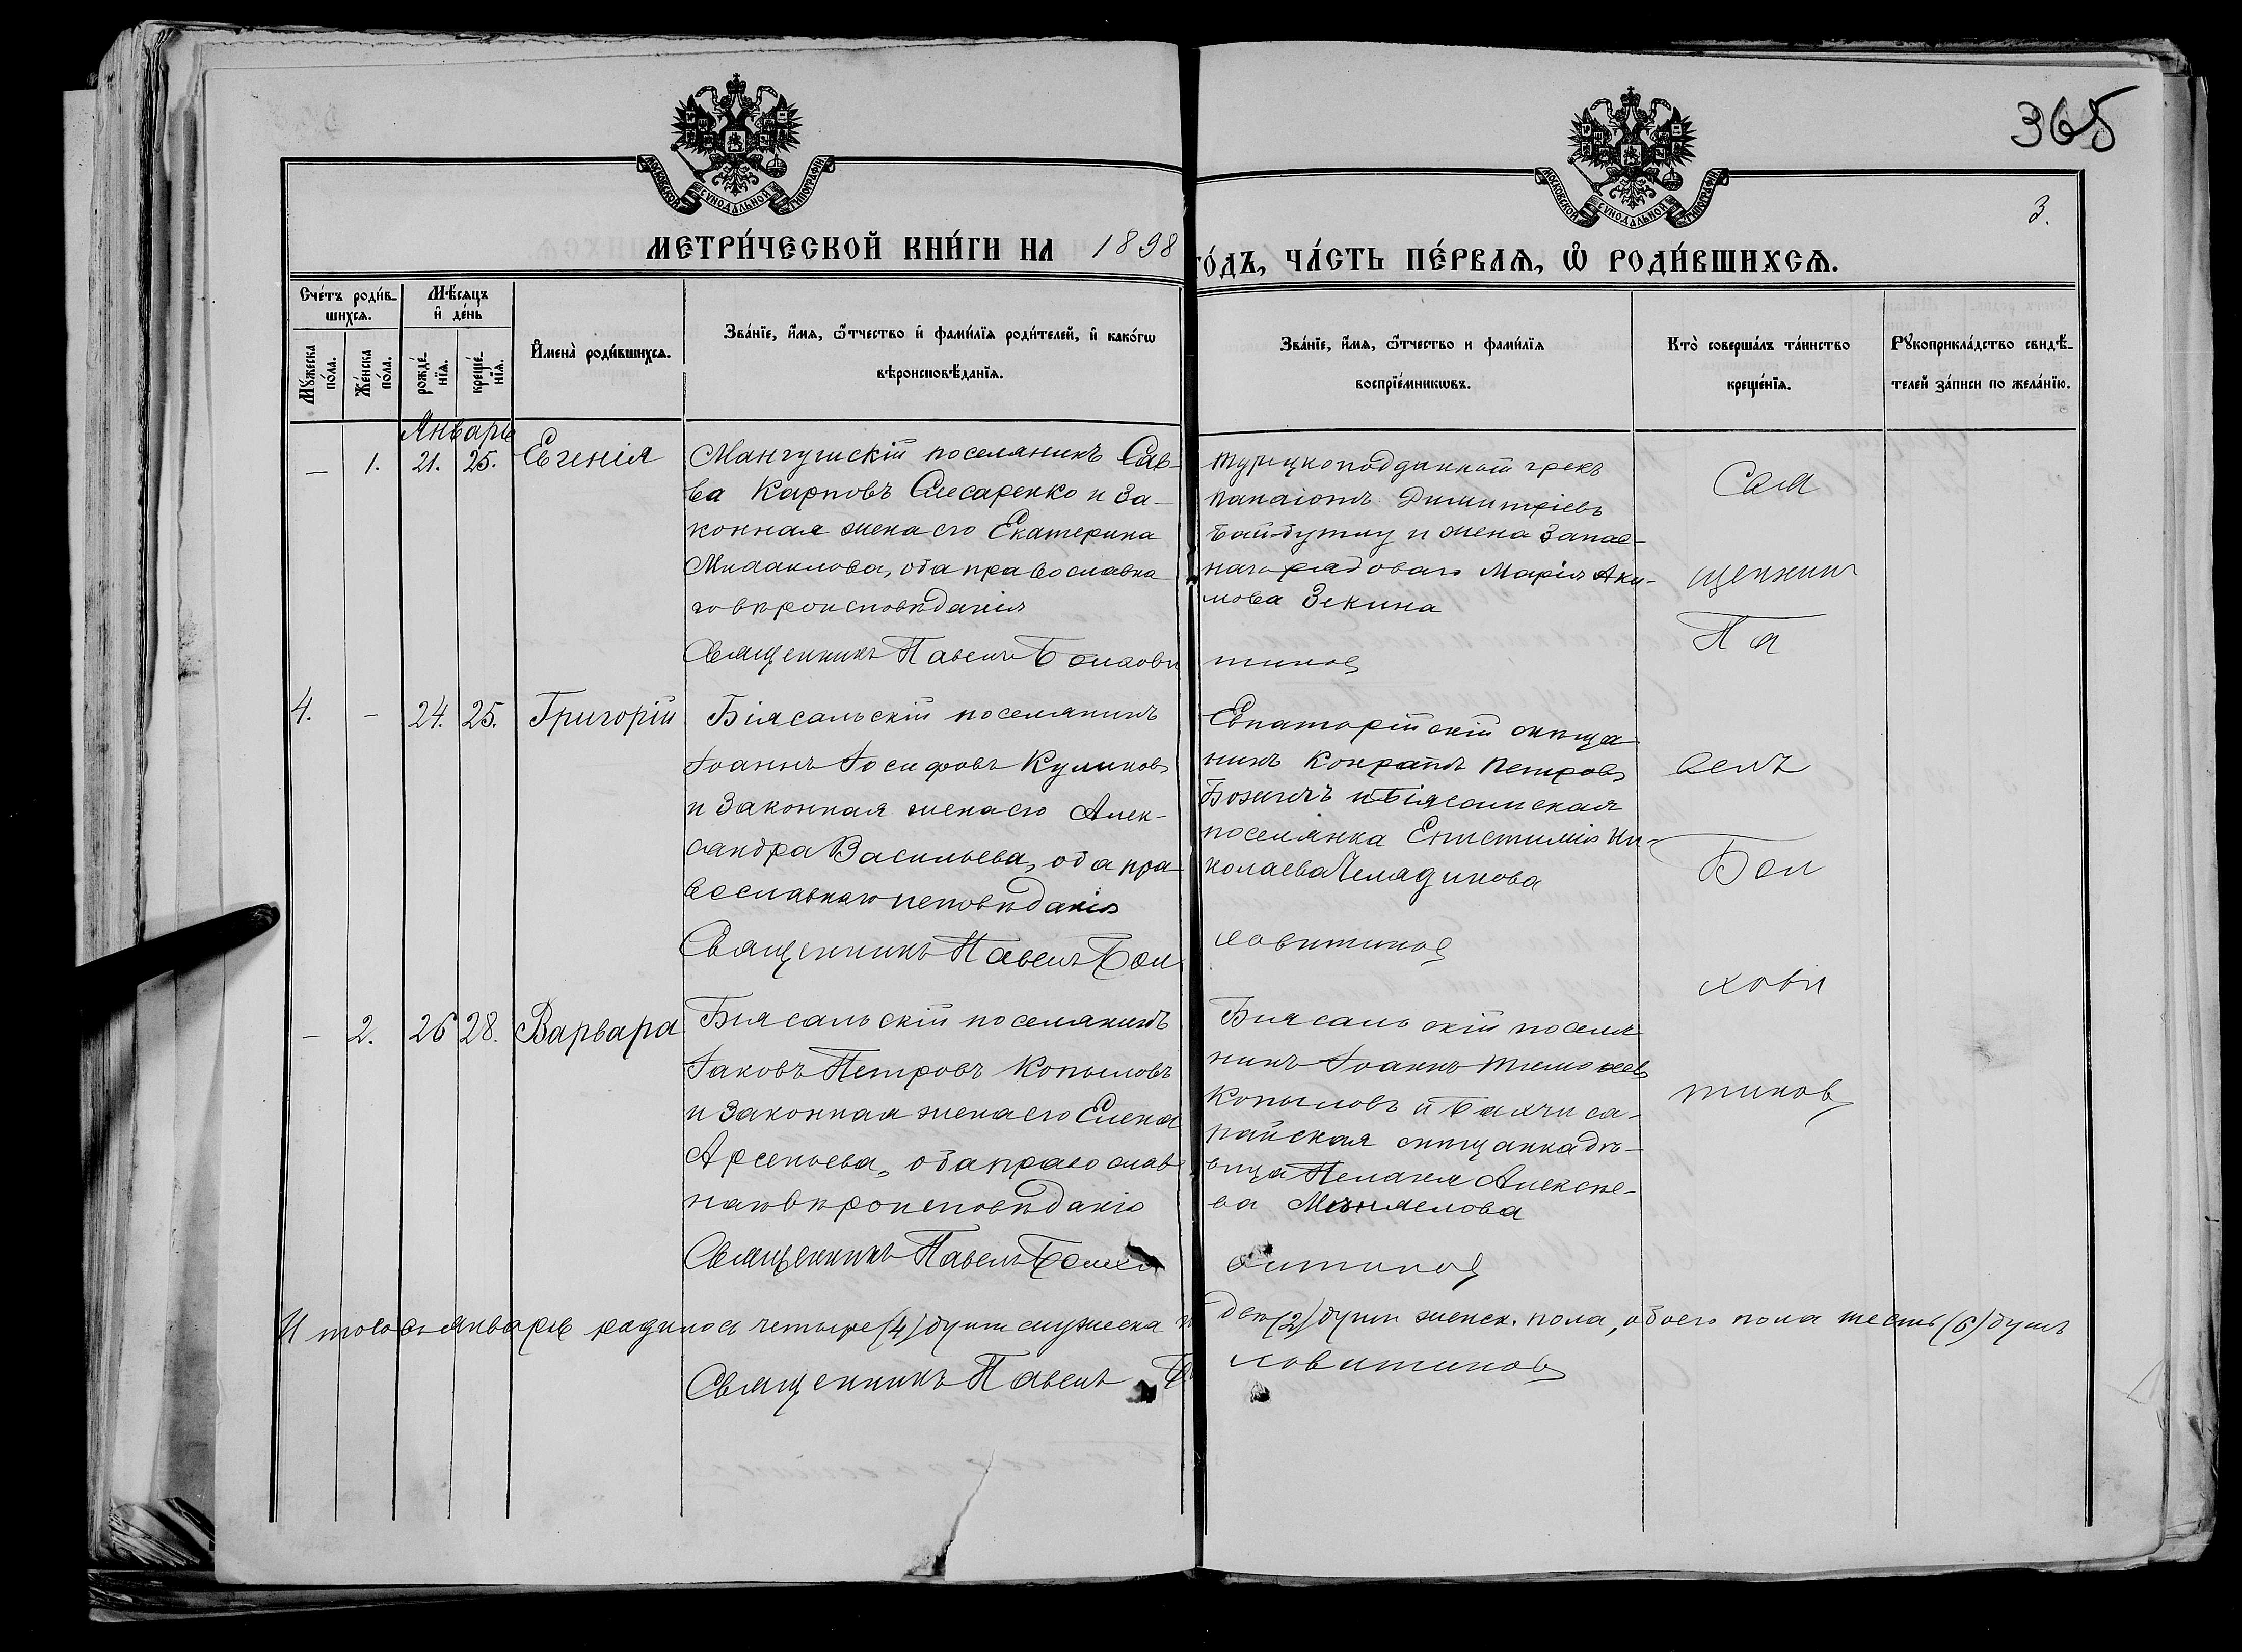 365
3.
МОСКОВСКОЙ СѴНОДАЛЬНОЙ ТИПОГРАФІИ
МОСКОВСКОЙ СѴНОДАЛЬНОЙ ТИПОГРАФІИ
МЕТРИ́ЧЕСКОЙ КНИ́ГИ НА 1898
ГО́ДЪ, ЧА́СТЬ ПЕ́РВАѦ, Ѽ РОДИ́ВШИХСѦ.
Сче́тъ роди́в-
шихсѧ.
Мꙋжеска по́ла.
Же́нска по́ла.
Мѣ́сѧцъ
и҆ де́нь
рожде́-
нїѧ.
креще́-
нїѧ.
И҆мена̀ роди́вшихсѧ.
Зва́нїе, и҆́мѧ, ѻ҆́тчество и҆ фами́лїѧ роди́телей, и҆ како́гѡ
вѣроисповѣ́данїѧ.
Зва́нїе, и҆́мѧ, ѻ҆́тчество и фами́лїѧ
воспрїе́мникѡвъ.
Кто̀ соверша́лъ та́инство
креще́нїѧ.
Рꙋкоприкла́дство свидѣ́-
телей за́писи по жела́нїю.
Январь
— 1. 21. 25. Евгенія
Мангушскій поселянинъ Сав-
ва Карповъ Слесаренко и за-
конная жена его Екатерина
Михаилова, оба православна
го вѣроисповѣданія
Священникъ Павелъ Болхови
турецкоподданный грекъ
Панаіотъ Димитріевъ
и жена запас-
наго рядоваго Марія Аки-
мова Зекина
тинов
4. - 24. 25. Григорій
Біясальскій поселянинъ
Іоаннъ Іосифовъ Куликов
и законная жена его Алек-
сандра Васильева, оба пра-
вославнаго исповѣданія
Священникъ Павелъ Бол
Евпаторійскій мѣща
нинъ Кондратъ Петров
и Біясальская
поселянка Епистимія Ни-
колаева Чемадикова
ховитинов
- 2. 26 28. Варвара
Біясальскій поселянинъ
Іаковъ Петровъ Копыловъ
и законная жена его Елена
Арсеньева, оба православ
наго вѣроисповѣданія
Священникъ Павелъ Болхо
Біясальскій поселя
нинъ Іоаннъ Тимофеев
Копыловъ и Бахчиса-
райская мѣщанка дѣ-
вица Пелагея Алексѣе-
ва
витинов
Свя
щенник
Па
велъ
Бол
хови
тинов
Итого въ январѣ родилось четыре (4) души мужеска и
двѣ (2) души женск. пола, обоего пола шесть (6) душъ
Священникъ Павелъ Бо
лховитинов